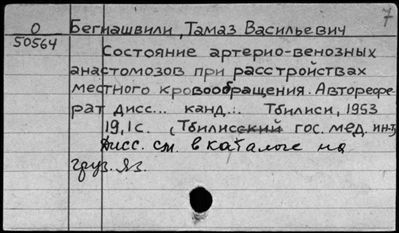 7
О Бегиашвили, Тамаз Васильевич
50564
Состояние артерио-венозных
анастомозов при расстройствах
местного кровообращения. Авторефе-
рат дисс... канд.:. Тбилиси, 1953
19,1 с. (Тбилисский гос. мед. ин-т)
Дисс. см. в каталоге на
груз. яз.